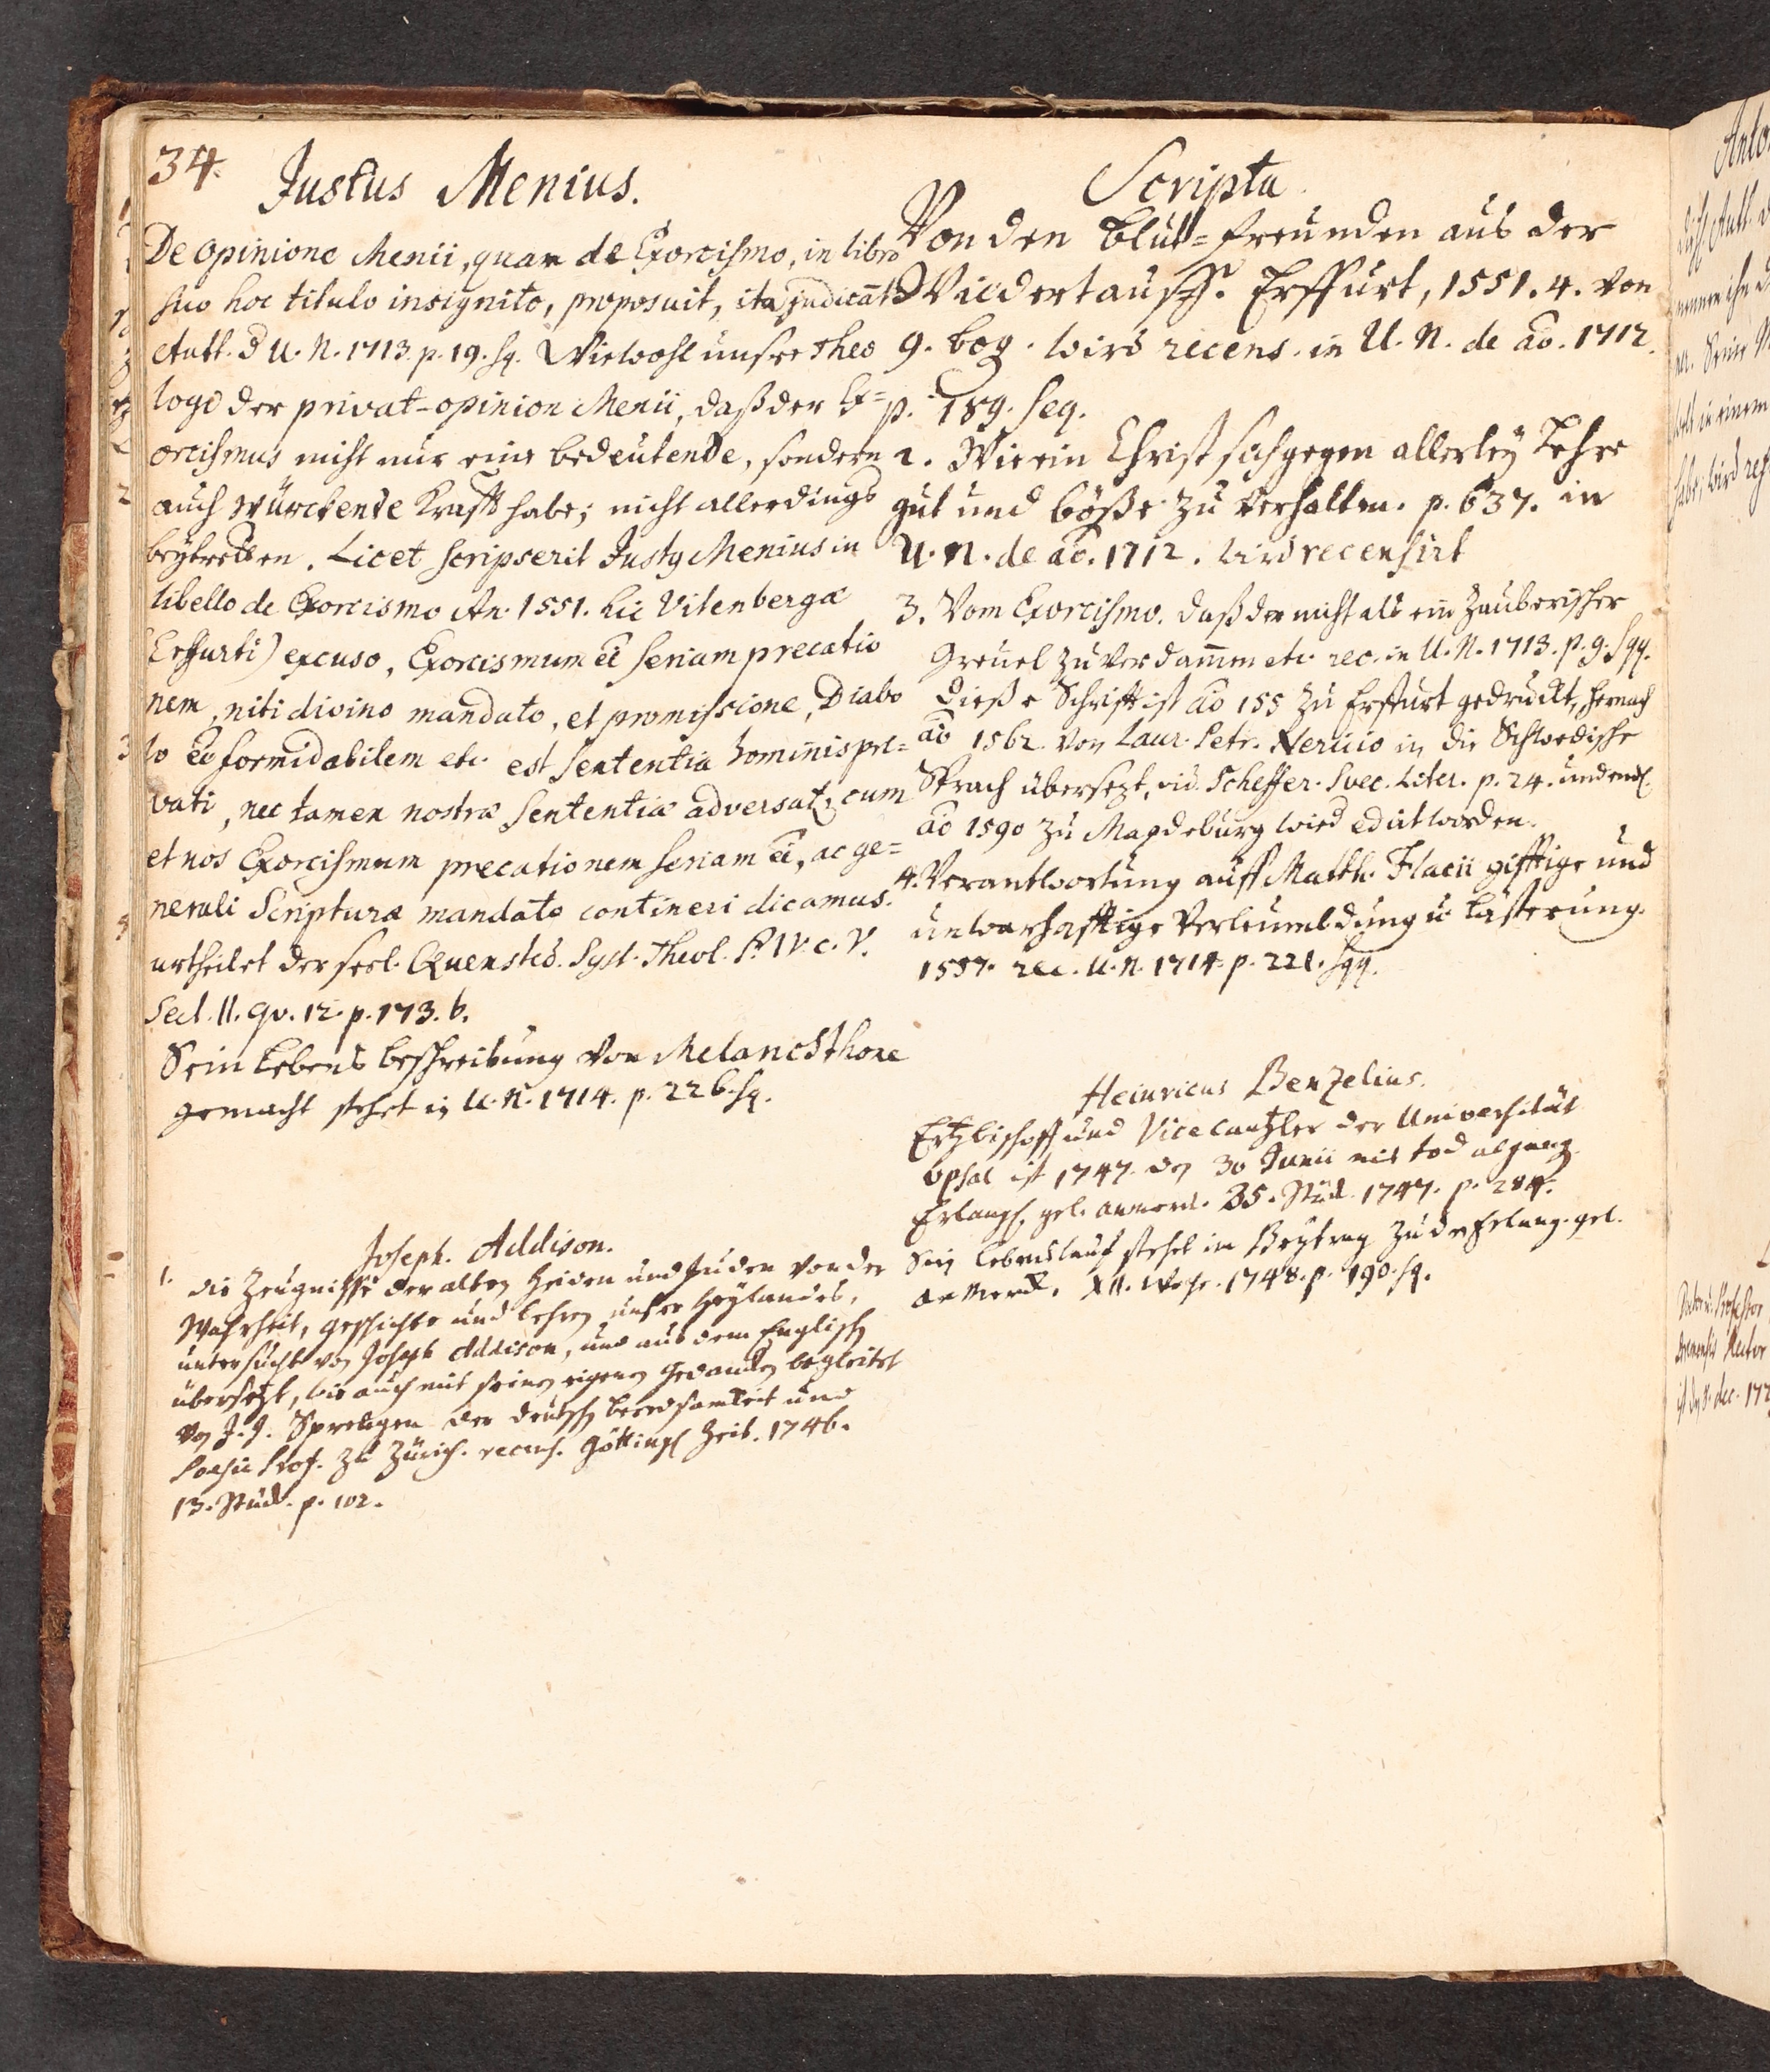 34.
Justus Menius.
De opinione Menii, quam de Exorcismo, in libro
suo hoc titulo insignito, proposuit, ita judicat
Autt. d U. N. 1713. p. 19. sq. Wiewohl unsere Theo
logi der privat-opinion Menii, daß der Ex=
orcismus nicht nur eine bedeutende, sondern
auch würckende Krafft habe; nicht allerdings
beytretten. Licet scripserit Justus Menius in
libello de Exorcismo An. 1551. hic Vitenbergæ
(Erffurti) excuso, Exorcismum eē seriam precatio
nem, niti divino mandato, et promissione, Diabo
lo eō formidabilem etc. est sententia hominis pri=
vati, nec tamen nostræ sententiæ adversat, cum
et nos Exorcismum precationem seriam eē, ac ge=
nerali Scripturæ mandato contineri dicamus.
urtheilet der seel. Quensted. Syst. Theol. P. IV. c. V.
Sect. II. qv. 12. p. 173. b.
Sein Lebens beschreibung von Melanchthone
gemacht stehet in U. N. 1714. p. 226. sq.
Joseph. Addison.
1. die Zeugnisse der alten Heiden und Juden von der
Wahrheit, geschichte und Lehren unsers Heylandes,
untersucht von Joseph Addison, und aus dem Englisch
übersetzt, wie auch mit seinen eigenen Gedancken begleitet
von J. J. Sprengen der deutsch beredsamkeit und
Poesie Prof. zu Zürich. recens. Götting Zeit. 1746.
13. Stück. p. 102.
Scripta
Von den Blut=freunden aus der
Widertauff. Erffurt, 1551. 4. von
9. bog. wird recens. in U. N. de aō. 1712.
p. 189. seq.
2. Wie ein Christ sich gegen allerley Lehre
gut und böße zu verhalten. p. 637. in
U. N. de aō. 1712. wird recensirt
3. Vom Exorcismo. daß der nicht als ein Zauberischer
Greuel zu verdam̄en etc. rec. in U. N. 1713. p. 9. sqq.
Dieße Schrifft ist aō 155 zu Erffurt gedruckt, hernach
aō 1562. von Laur. Petr. Nericio in die Schwedische
Sprach übersezt, vid. Scheffer. Svec. Liter. p. 24. und endl.
aō 1590 zu Magdeburg wied edirt worden.
4. Verantwortung auff Matth. Flacii gifftige und
unwarhafftige Verleumbdung u. Lästerung.
1557. rec. U. N. 1714. p. 221. sqq.
Heinricus Benzelius.
Ertzbischoff und Vicecantzler der Universität
Upsal ist 1747. den 30 Junii mit tod abgang
Erlang, gel. anmerk. 35. Stück 1747. p. 284.
Sein Lebenslauf stehet im Beytrag zu der Erlang. gel.
anmerk. XII. Woche. 1748. p. 190. sq.